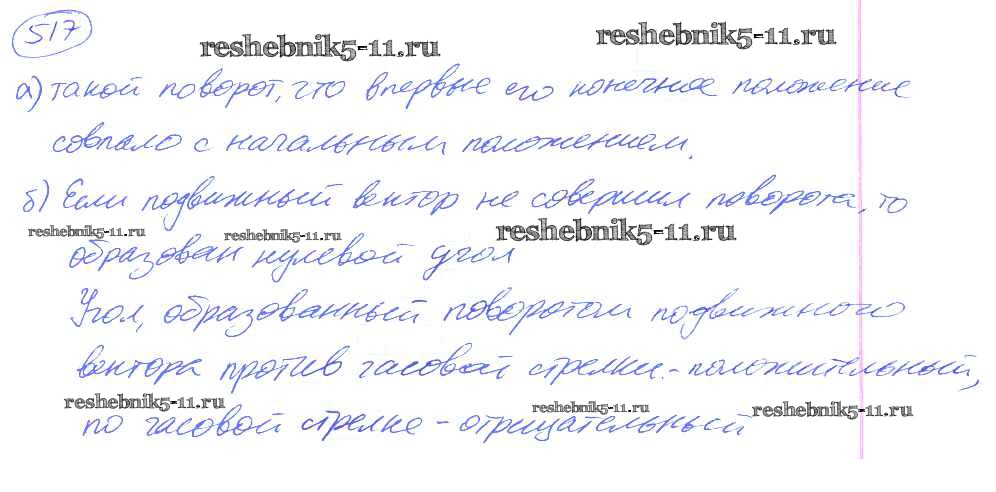 517
reshebnik5-11.ru reshebnik5-11.ru
а) такой поворот, что впервые его конечное положение
совпало с начальным положением.
б) Если подвижный вектор не совершил поворота, то
reshebnik5-11.ru reshebnik5-11.ru reshebnik5-11.ru
образован нулевой угол
Угол, образованный поворотом подвижного
вектора против часовой стрелки - положительный,
reshebnik5-11.ru reshebnik5-11.ru reshebnik5-11.ru
по часовой стрелке - отрицательный